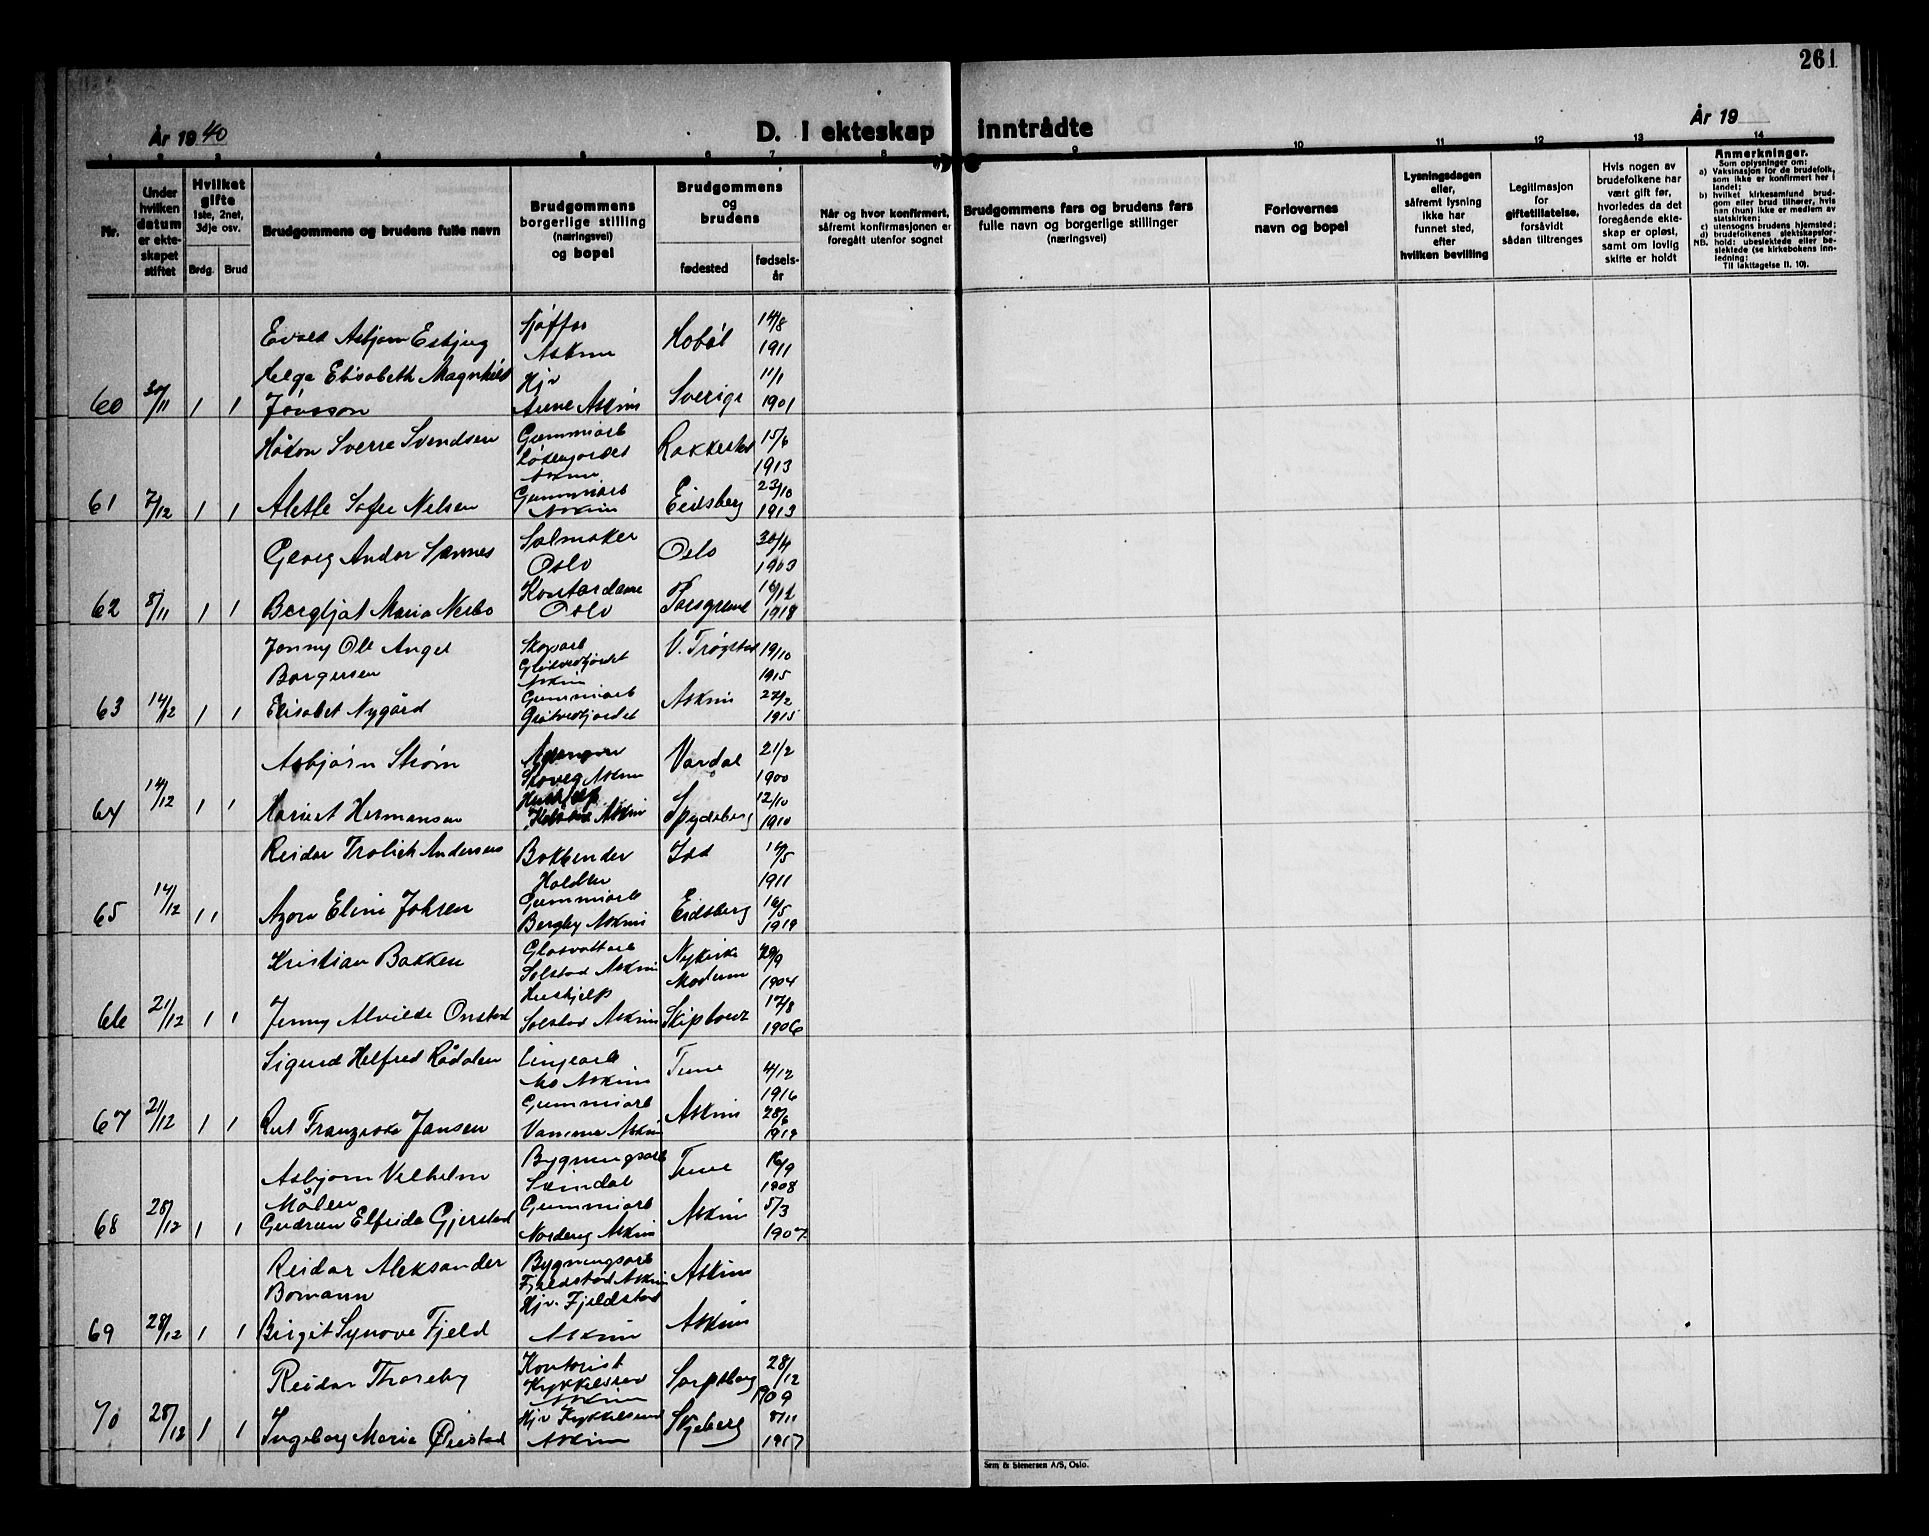 261
År 1940
D. I ekteskap inntrådte
År 19
1 2 3 4 5 6 7 8 9 10 11 12 13 14
Nr.
Under hvilken datum er ekteskapet stiftet
Hvilket gifte 1ste, 2net, 3dje osv.
Brdg. Brud
Brudgommens og brudens fulle navn
Brudgommens borgerlige stilling (næringsvei) og bopel
Brudgommens og brudens
fødested
fødselsår
Når og hvor konfirmert, såfremt konfirmasjonen er foregått utenfor sognet
Brudgommens fars og brudens fars fulle navn og borgerlige stillinger (næringsvei)
Forlovernes navn og bopel
Lysningsdagen eller, såfremt lysning ikke har funnet sted, efter hvilken bevilling
Legitimasjon for giftetillatelse, forsåvidt sådan tiltrenges
Hvis nogen av brudefolkene har vært gift før, hvorledes da det foregående ekteskap er opløst, samt om lovlig skifte er holdt
Anmerkninger.
Som oplysninger om:
a) Vaksinasjon for de brudefolk, som ikke er konfirmert her i landet;
b) hvilket kirkesamfund brudgom eller brud tilhører, hvis han (hun) ikke er medlem av statskirken;
c) utensogns brudens hjemsted;
d) brudefolkenes slektskapsforhold: ubeslektede eller beslektede (se kirkebokens innledning;
NB. Til iakttagelse II. 10).
Evald Asbjørn Esbjug Sjåffør Askim Hobøl 14/8 1911
60 30/11 1 1 Helga Elisabeth Magnhild Jönsson Hjv Askim Sverige 11/1 1901
Håkon Sverre Svendsen Gummiarb Løkengordet Askim Rakkestad 15/6 1913
61 7/12 1 1 Alette Sofie Nelsen Gummiarb Askim Eidsberg 23/10 1913
Georg Andor Sannes Salmaker Oslo Oslo 30/4 1903
62 8/11 1 1 Bergljot Maria Nesbo Kontordame Oslo Porsgrund 16/12 1918
Jonny Ole Angel Borgersen Skoarb Askim V. Trøgstad 19/10 1915
63 14/12 1 1 Elisabet Nygård Gummiarb Askim 27/2 1915
Asbjørn Strøm Skoveg Askim Vardal 21/2 1900
64 14/12 1 1 Hermansen Hushjelp Askim Spydeberg 12/10 1910
Reidar Frolich Andersen Bokbinder Halden Idd 14/5 1911
65 14/12 1 1 Azora Eline Johsen Gummiarb Bergby Askim Eidsberg 16/5 1919
Kristian Bakken Glasvattarb Solstad Askim Nykirke Modum 29/9 1904
66 21/12 1 1 Jenny Alvilde Onstad Hushjelp Solstad Askim Skiptvet 17/8 1906
Sigurd Helfred Rådalen Linjearb Mo Askim Tune 4/12 1916
67 21/12 1 1 Rut Franziska Jansen Gummiarb Vamma Askim Askim 28/6 1919
Asbjørn Vilhelm Målen Bygningsarb Svindal Tune 16/9 1908
68 28/12 1 1 Gudrun Elfrida Gjerstad Gummiarb Norderig Askim Askim 5/3 1907
Reidar Aleksander Bomann Bygningsarb Fjeldstad Askim Askim
69 28/12 1 1 Birgit Synove Fjeld Hjv. Fjeldstad Askim Askim
Reidar Thoreby Kontorist Kykkelsrud Askim Sarpsborg 28/12 1909
70 28/12 1 1 Ingeborg Marie Øiestad Hjv Kykkelsrud Askim Skjeberg 8/11 1917
Sem & Stenersen A/S, Oslo.